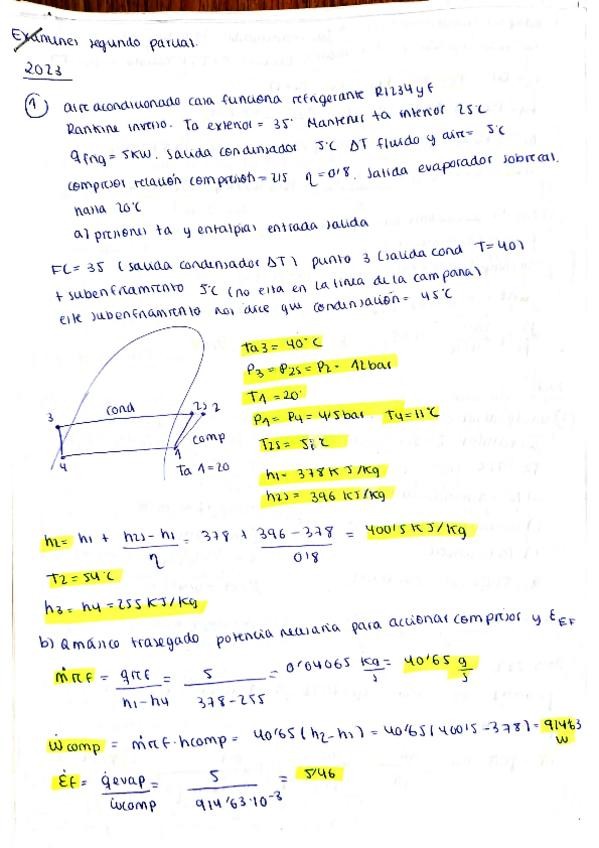 Exámenes segundo parcial.
2023
① aire acondicionado casa funciona refrigerante R1234yf
Rankine inverso. Ta exterior = 35° Mantener ta interior 25°C
qfng = 5KW. Salida condensador 5°C ΔT fluido y aire = 5°C
compresor relación compresión = 2'5 η = 0'8. Salida evaporador sobrecal.
hasta 20°C
a) presiones ta y entalpias entrada salida
FC = 35 (salida condensador ΔT) punto 3 (salida cond T = 40)
+ subenfriamiento 5°C (no esta en la linea de la campana)
este subenfriamiento nos dice que condensación = 45°C
cond
comp
3
4
2s 2
1
Ta 1 = 20
Ta3 = 40°C
P3 = P2s = P2 = 12bar
T1 = 20°
P1 = P4 = 4'5bar T4 = 11°C
h1 = 378 KJ/kg
h2s = 396 KJ/kg
h2 = h1 + h2s - h1 / η = 378 + 396 - 378 / 0'8 = 400'5 KJ/Kg
T2 = 54°C
h3 = h4 = 255 KJ/Kg
b) Qmásico trasegado potencia necesaria para accionar compresor y εEF
ṁref = qref / h1 - h4 = 5 / 378 - 255 = 0'04065 Kg/s = 40'65 g/s
ẇcomp = ṁref · hcomp = 40'65 (h2 - h1) = 40'65 (400'5 - 378) = 914'63 W
Ėf = q̇evap / ẇcomp = 5 / 914'63·10⁻³ = 5'46